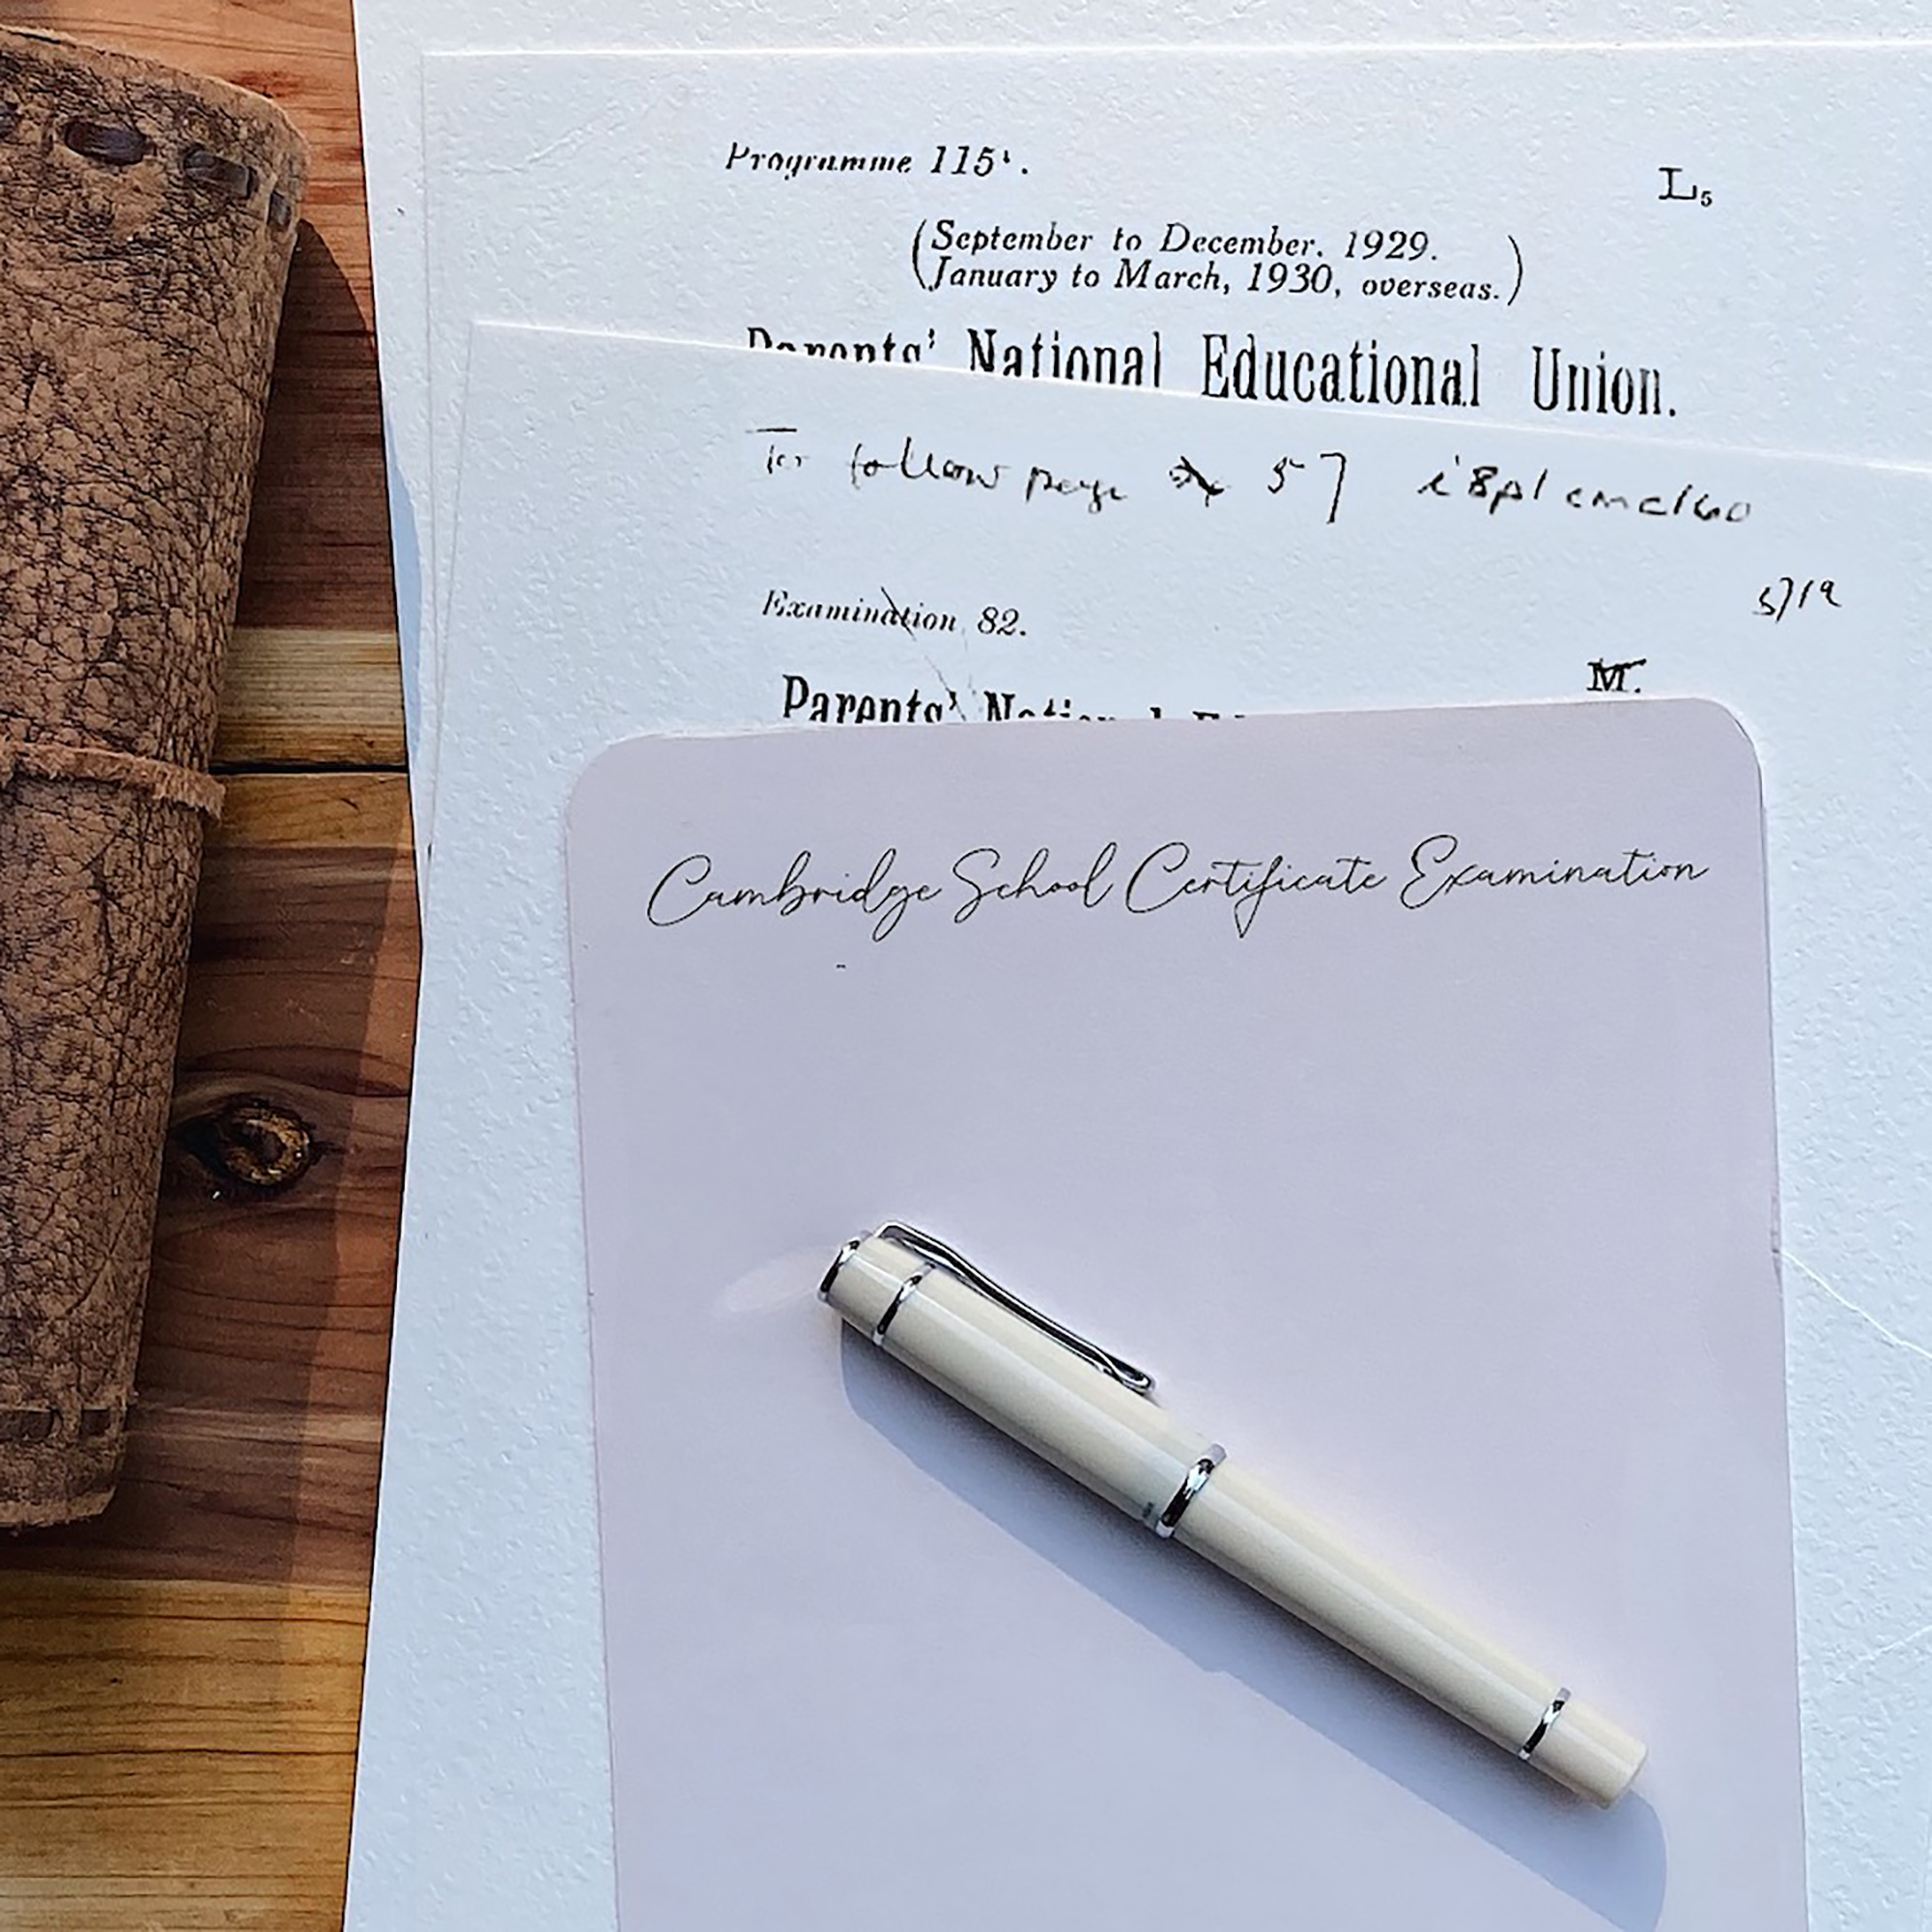 Programme 115
L5
(September to December. 1929.
January to March, 1930, overseas.)
Parents' National Educational Union.
To follow page 57 i8p1cmc160
Examination 82.
5719
M.
Parents' National
Cambridge School Certificate Examination